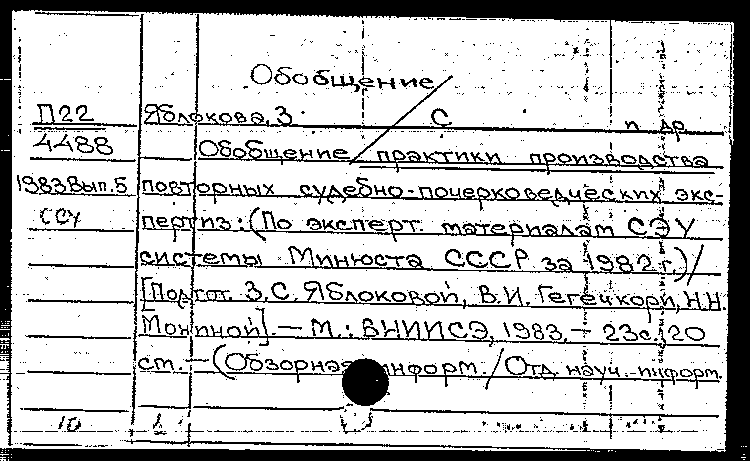 Обобщение
П22 Яблокова, З. С. и др.
4488 Обобщение практики производства
1983 Вып.5 повторных судебно-почерковедческих экс-
ССУ пертиз: (По эксперт. материалам СЭУ
системы Минюста СССР за 1982 г.)/
[Подгот. З.С. Яблоковой, В.И. Гегечкори, Н.Н.
Мониной]. — М.: ВНИИСЭ, 1983. — 23с.; 20
см. — (Обзорная информ./Отд. науч. информ.
10 1